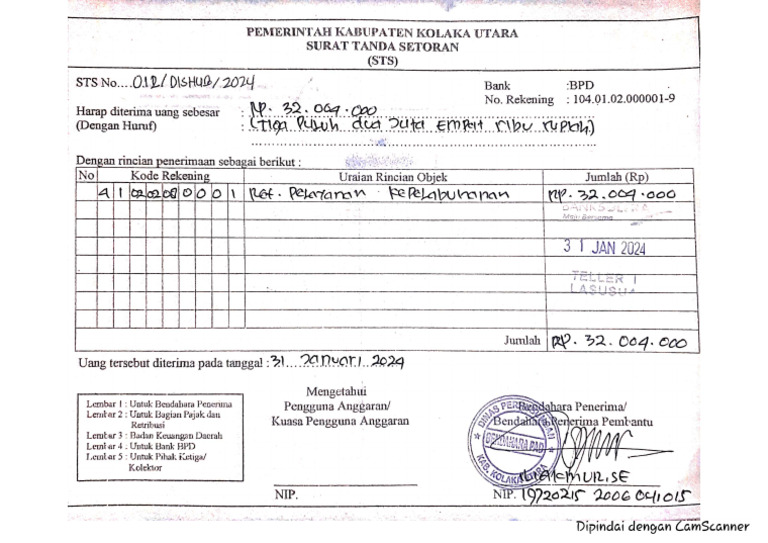 PEMERINTAH KABUPATEN KOLAKA UTARA
SURAT TANDA SETORAN
(STS)
STS No....012/DISHUB/2024
Bank :BPD
No. Rekening : 104.01.02.000001-9
Harap diterima uang sebesar : RP. 32.004.000
(Dengan Huruf) : (Tiga Puluh dua Juta Empat ribu rupiah)
Dengan rincian penerimaan sebagai berikut :
No Kode Rekening Uraian Rincian Objek Jumlah (Rp)
4 1 02 02 08 0 0 0 1 Ret. Pelayanan Kepelabuhanan RP. 32.004.000
31 JAN 2024
TELLER 1
LASUSUA
Jumlah RP. 32.004.000
Uang tersebut diterima pada tanggal : 31 Januari 2024
Lembar 1 : Untuk Bendahara Penerima
Lembar 2 : Untuk Bagian Pajak dan
Retribusi
Lembar 3 : Badan Keuangan Daerah
Lembar 4 : Untuk Bank BPD
Lembar 5 : Untuk Pihak Ketiga/
Kolektor
Mengetahui
Pengguna Anggaran/
Kuasa Pengguna Anggaran
NIP.
Bendahara Penerima/
Bendahara Penerima Pembantu
BENDAHARA PAD
KAB. KOLAKA UTARA
NIP. 19720215 2006 041015
Dipindai dengan CamScanner